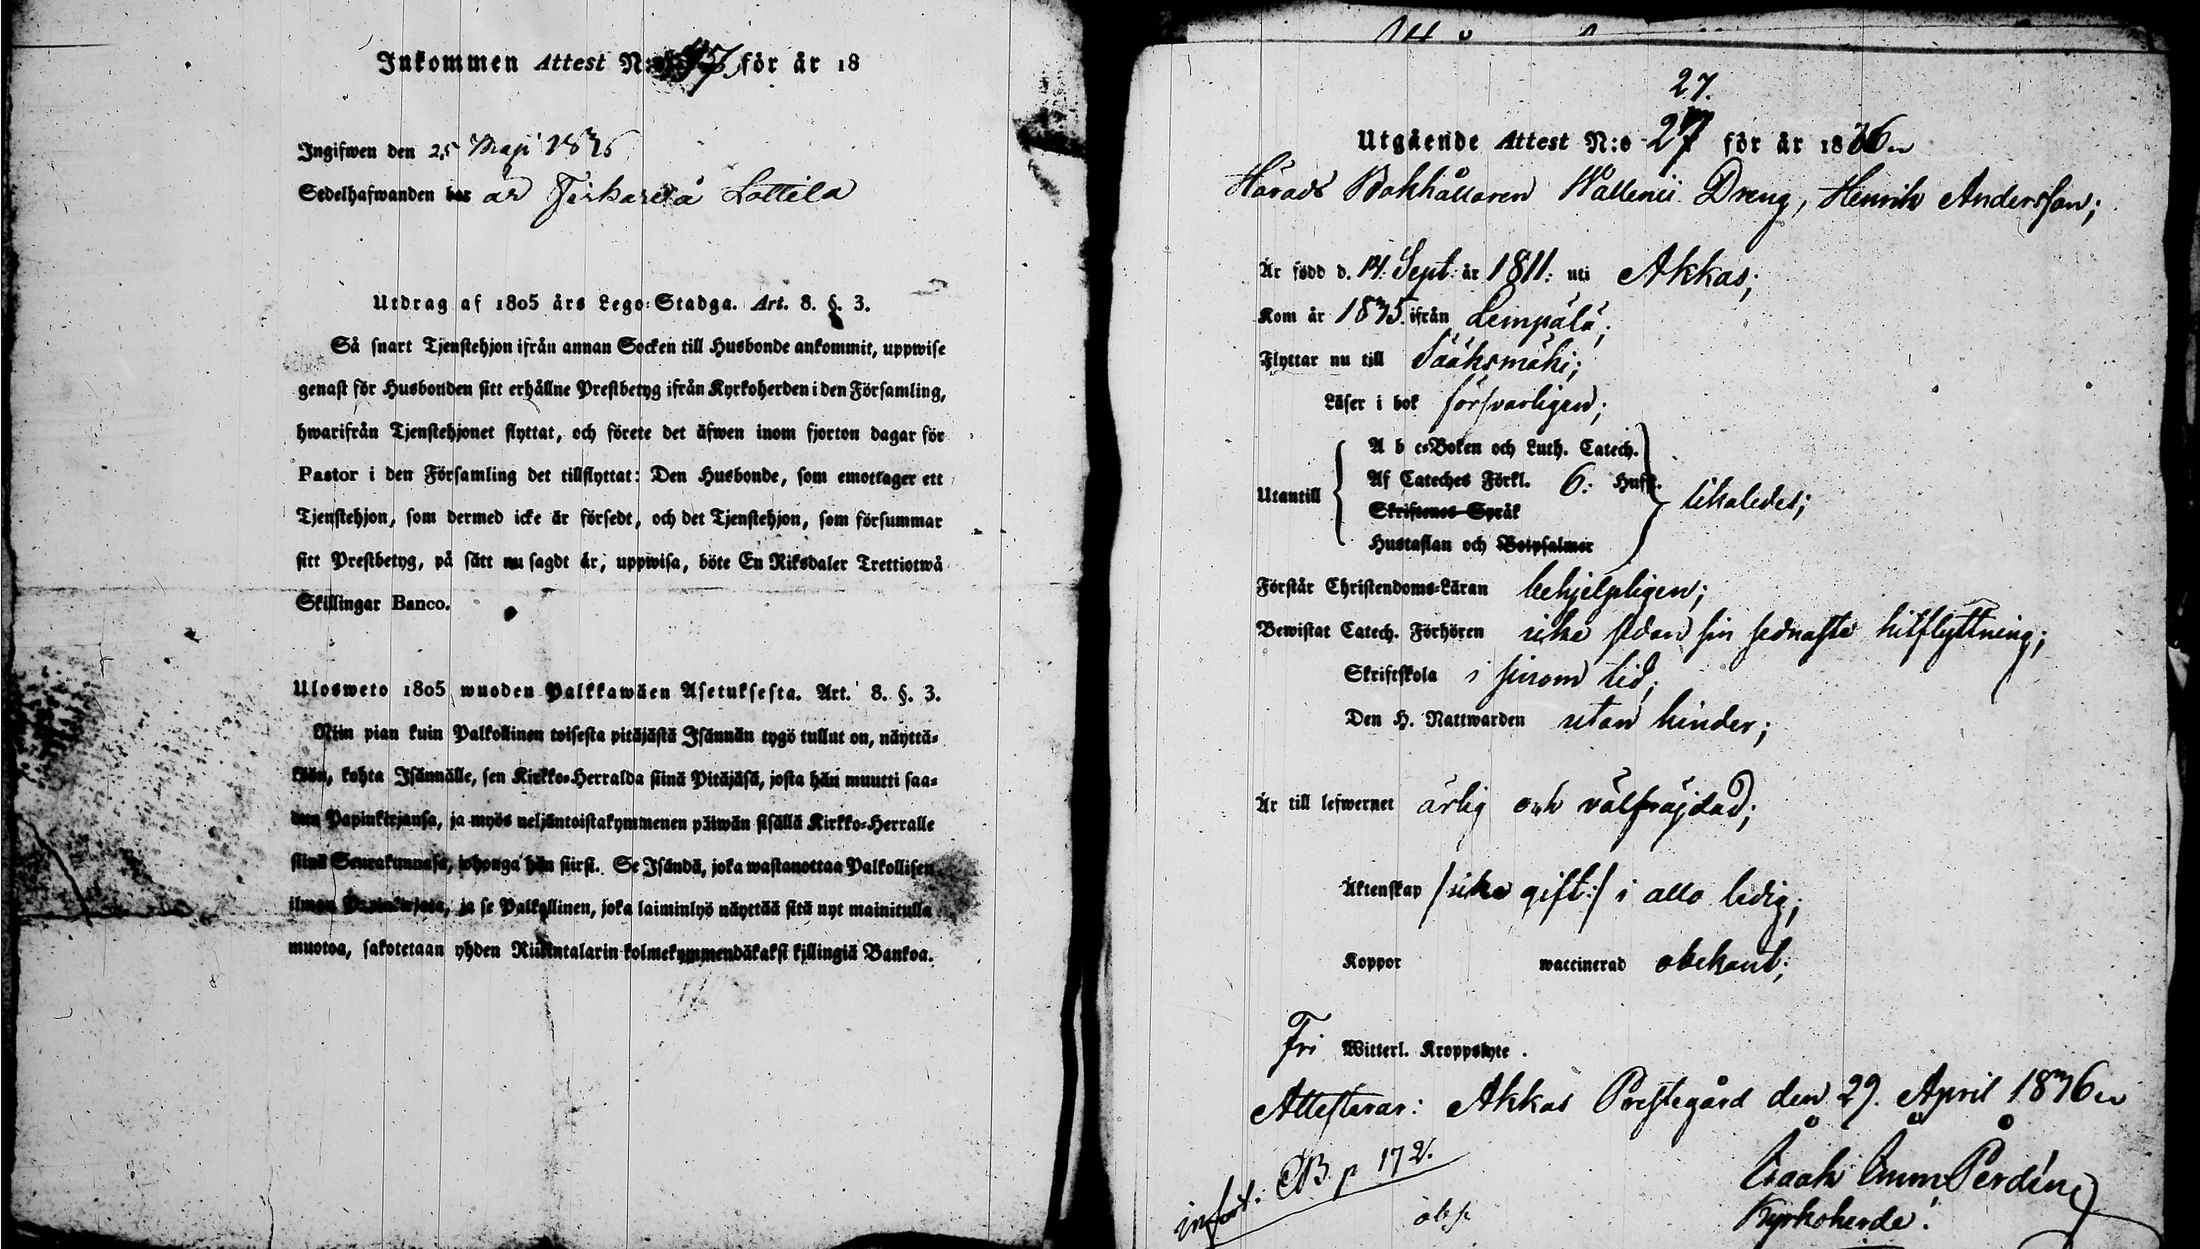 Inkommen Attest N:o 37. för år 18
Ingifwen den 25 Maji 1836
Sedelhafwanden bor är Lottila
Utdrag af 1805 års Lego-Stadga. Art. 8. §. 3.
Så snart Tjenstehjon ifrån annan Socken till Husbonde ankommit, uppwise
genast för Husbonden sitt erhållne Prestbetyg ifrån Kyrkoherden i den Församling,
hwarifrån Tjenstehjonet flyttat, och förete det äfwen inom fjorton dagar för
Pastor i den Församling det tillflyttat: Den Husbonde, som emottager ett
Tjenstehjon, som dermed icke är försedt, och det Tjenstehjon, som försummar
sitt Prestbetyg, på sätt nu sagdt är, uppwisa, böte En Riksdaler Trettiotwå
Skillingar Banco.
Ulosweto 1805 wuoden Palkkawäen Asetuksesta. Art. 8. §. 3.
Niin pian kuin Palkollinen toisesta pitäjästä Isännän tygö tullut on, näyttä-
köön, kohta Isännälle, sen Kirkko-Herralda siinä Pitäjäsä, josta hän muutti saa-
dun Papinkirjansa, ja myös neljäntoistakymmenen päiwän sisällä Kirkko-Herralle
siinä Seurakunnasa, johonga hän siirsi. Se Isändä, joka wastanottaa Palkollisen
ilman Papinkirjata, ja se Palkollinen, joka laiminlyö näyttää sitä nyt mainitulla
muotoa, sakotetaan yhden Riikintalarin kolmekymmendäkaksi killingiä Bankoa.
27.
Utgående Attest N:o 27 för år 1836
Härads Bokhållaren Wallenii Dreng, Henrik Andersson;
Är född d. 14. Sept. år 1811: uti Akkas;
Kom år 1835. ifrån Lempälä;
Flyttar nu till Sääksmäki;
Läser i bok försvarligen;
Utantill
A b c-Boken och Luth. Catech.
Af Cateches Förkl. 6: Hufs.
Skriftenes Språk
Hustaflan och Botpsalmer
likaledes;
Förstår Christendoms-Läran behjelpligen;
Bewistat Catech. Förhören icke sedan sin sednaste hitflyttning;
Skriftskola i sinom tid;
Den H. Nattwarden utan hinder;
Är till lefwernet ärlig och välfräjdad;
Äktenskap /icke gift:/ i allo ledig;
Koppor waccinerad obekant;
Fri Witterl. Kroppslyte.
Attesterar: Akkas Prestegård den 29. April 1836
Isaak Perdén
Kyrkoherde.
infört. CB. p 172.